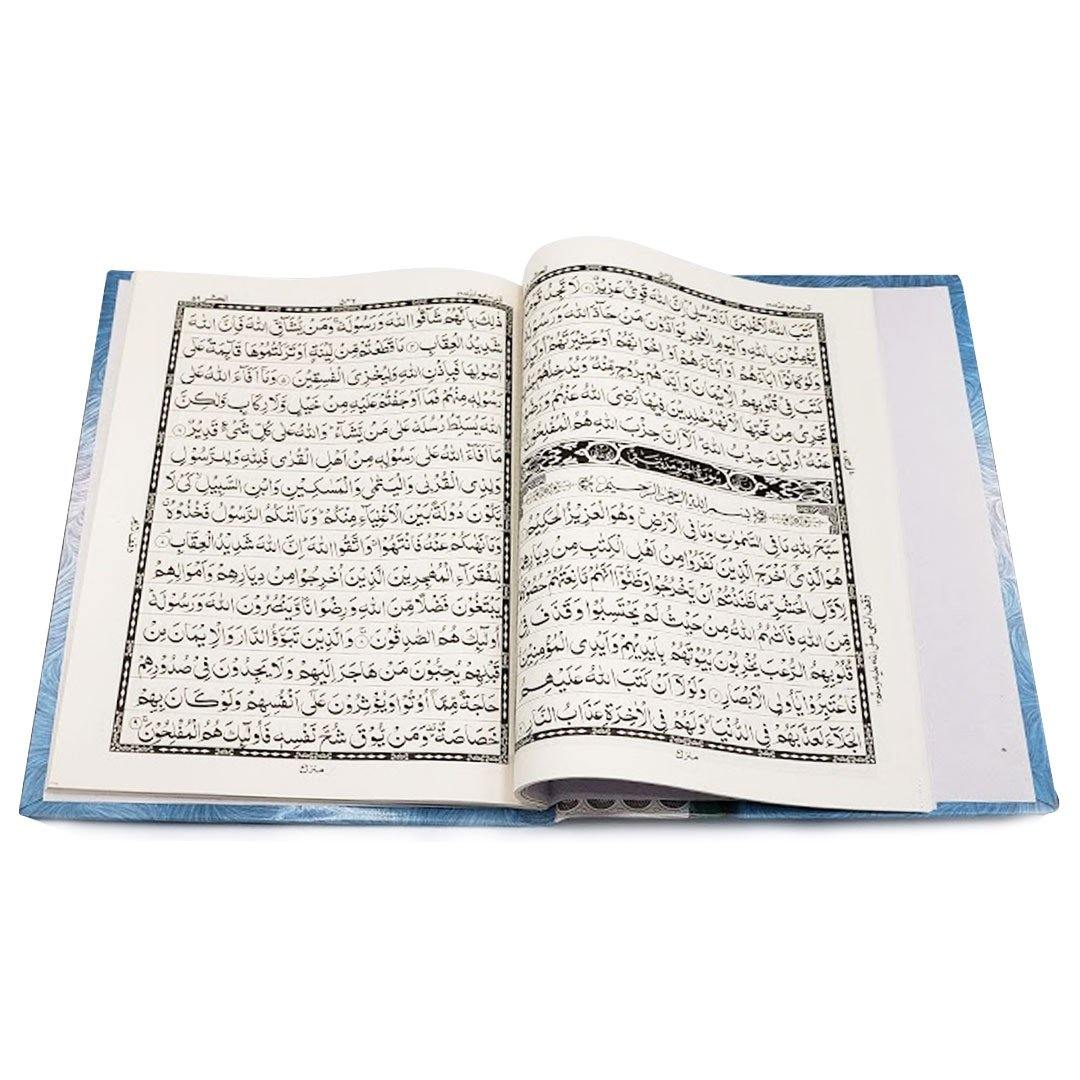 كَتَبَ اللّٰهُ لَاَغْلِبَنَّ اَنَا وَرُسُلِىْ اِنَّ اللّٰهَ قَوِىٌّ عَزِيْزٌ لَا تَجِدُ
يُّؤْمِنُوْنَ بِاللّٰهِ وَالْيَوْمِ الْاٰخِرِ يُوَآدُّوْنَ مَنْ حَآدَّ اللّٰهَ وَرَسُوْلَهٗ
وَلَوْ كَانُوْۤا اٰبَآءَهُمْ اَوْ اَبْنَآءَهُمْ اَوْ اِخْوَانَهُمْ اَوْ عَشِيْرَتَهُمْ
كَتَبَ فِىْ قُلُوْبِهِمُ الْاِيْمَانَ وَاَيَّدَهُمْ بِرُوْحٍ مِّنْهُ وَيُدْخِلُهُمْ
تَجْرِىْ مِنْ تَحْتِهَا الْاَنْهٰرُ خٰلِدِيْنَ فِيْهَا رَضِىَ اللّٰهُ عَنْهُمْ وَرَضُوْا
عَنْهُ اُولٰٓئِكَ حِزْبُ اللّٰهِ اَلَاۤ اِنَّ حِزْبَ اللّٰهِ هُمُ الْمُفْلِحُوْنَ
بِسْمِ اللّٰهِ الرَّحْمٰنِ الرَّحِيْمِ
سَبَّحَ لِلّٰهِ مَا فِى السَّمٰوٰتِ وَمَا فِى الْاَرْضِ وَهُوَ الْعَزِيْزُ الْحَكِيْمُ
هُوَ الَّذِىْۤ اَخْرَجَ الَّذِيْنَ كَفَرُوْا مِنْ اَهْلِ الْكِتٰبِ مِنْ دِيَارِهِمْ
لِاَوَّلِ الْحَشْرِ مَا ظَنَنْتُمْ اَنْ يَّخْرُجُوْا وَظَنُّوْۤا اَنَّهُمْ مَّانِعَتُهُمْ حُصُوْنُهُمْ
مِّنَ اللّٰهِ فَاَتٰىهُمُ اللّٰهُ مِنْ حَيْثُ لَمْ يَحْتَسِبُوْا وَقَذَفَ فِىْ
قُلُوْبِهِمُ الرُّعْبَ يُخْرِبُوْنَ بُيُوْتَهُمْ بِاَيْدِيْهِمْ وَاَيْدِى الْمُؤْمِنِيْنَ
فَاعْتَبِرُوْا يٰۤاُولِى الْاَبْصَارِ وَلَوْلَاۤ اَنْ كَتَبَ اللّٰهُ عَلَيْهِمُ
الْجَلَآءَ لَعَذَّبَهُمْ فِى الدُّنْيَا وَلَهُمْ فِى الْاٰخِرَةِ عَذَابُ النَّارِ
ذٰلِكَ بِاَنَّهُمْ شَآقُّوا اللّٰهَ وَرَسُوْلَهٗ وَمَنْ يُّشَآقِّ اللّٰهَ فَاِنَّ اللّٰهَ
شَدِيْدُ الْعِقَابِ مَا قَطَعْتُمْ مِّنْ لِّيْنَةٍ اَوْ تَرَكْتُمُوْهَا قَآئِمَةً عَلٰۤى
اُصُوْلِهَا فَبِاِذْنِ اللّٰهِ وَلِيُخْزِىَ الْفٰسِقِيْنَ وَمَاۤ اَفَآءَ اللّٰهُ عَلٰى
رَسُوْلِهٖ مِنْهُمْ فَمَاۤ اَوْجَفْتُمْ عَلَيْهِ مِنْ خَيْلٍ وَّلَا رِكَابٍ وَّلٰكِنَّ
اللّٰهَ يُسَلِّطُ رُسُلَهٗ عَلٰى مَنْ يَّشَآءُ وَاللّٰهُ عَلٰى كُلِّ شَىْءٍ قَدِيْرٌ
مَاۤ اَفَآءَ اللّٰهُ عَلٰى رَسُوْلِهٖ مِنْ اَهْلِ الْقُرٰى فَلِلّٰهِ وَلِلرَّسُوْلِ
وَلِذِى الْقُرْبٰى وَالْيَتٰمٰى وَالْمَسٰكِيْنِ وَابْنِ السَّبِيْلِ كَىْ لَا
يَكُوْنَ دُوْلَةًۢ بَيْنَ الْاَغْنِيَآءِ مِنْكُمْ وَمَاۤ اٰتٰىكُمُ الرَّسُوْلُ فَخُذُوْهُ
وَمَا نَهٰىكُمْ عَنْهُ فَانْتَهُوْا وَاتَّقُوا اللّٰهَ اِنَّ اللّٰهَ شَدِيْدُ الْعِقَابِ
لِلْفُقَرَآءِ الْمُهٰجِرِيْنَ الَّذِيْنَ اُخْرِجُوْا مِنْ دِيَارِهِمْ وَاَمْوَالِهِمْ
يَبْتَغُوْنَ فَضْلًا مِّنَ اللّٰهِ وَرِضْوَانًا وَّيَنْصُرُوْنَ اللّٰهَ وَرَسُوْلَهٗ
اُولٰٓئِكَ هُمُ الصّٰدِقُوْنَ وَالَّذِيْنَ تَبَوَّؤُ الدَّارَ وَالْاِيْمَانَ مِنْ
قَبْلِهِمْ يُحِبُّوْنَ مَنْ هَاجَرَ اِلَيْهِمْ وَلَا يَجِدُوْنَ فِىْ صُدُوْرِهِمْ
حَاجَةً مِّمَّاۤ اُوْتُوْا وَيُؤْثِرُوْنَ عَلٰۤى اَنْفُسِهِمْ وَلَوْ كَانَ بِهِمْ
خَصَاصَةٌ وَمَنْ يُّوْقَ شُحَّ نَفْسِهٖ فَاُولٰٓئِكَ هُمُ الْمُفْلِحُوْنَ